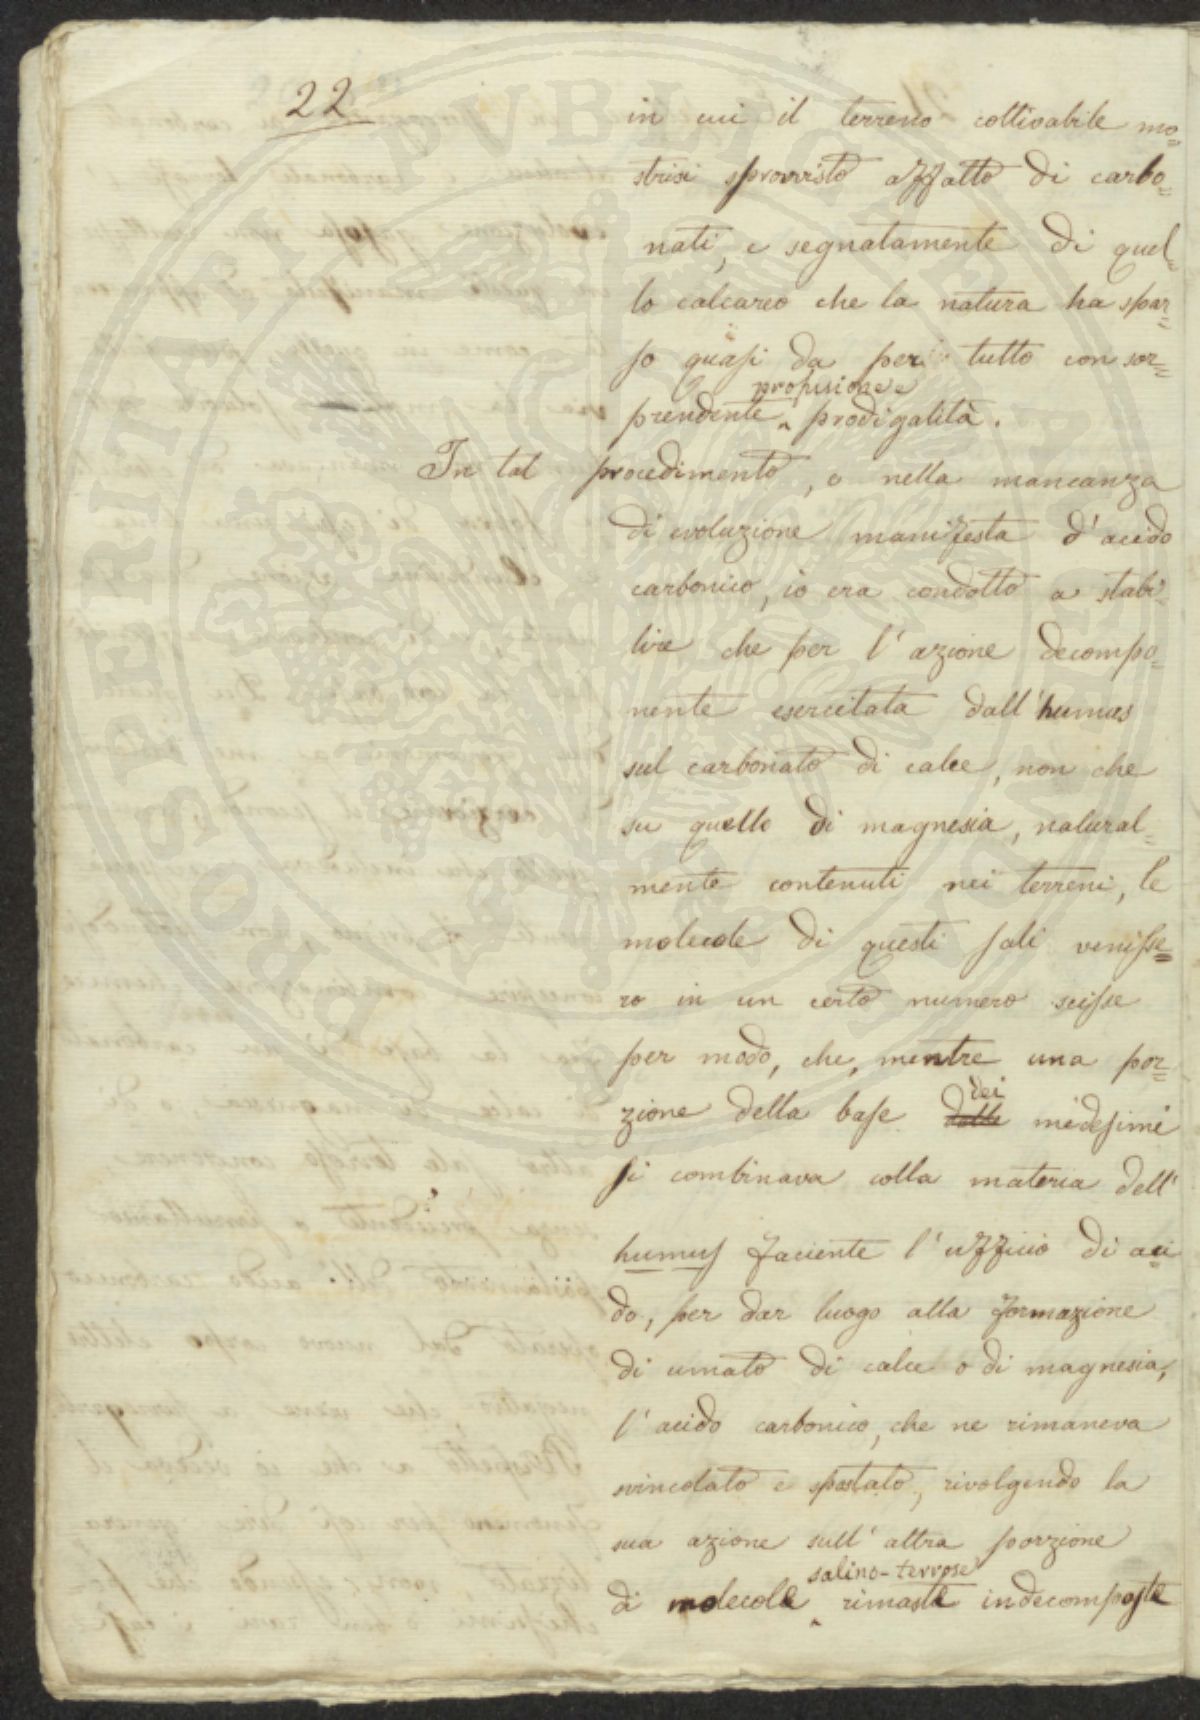 22
in cui il terreno coltivabile mo=
strisi sprovvisto affatto di carbo=
nati, e segnatamente di quel=
lo calcareo che la natura ha spar=
so quasi da per tutto con sor=
profusione e
prendente ‸ prodigalità.
In tal procedimento, e nella mancanza
di evoluzione manifesta d'acido
carbonico, io era condotto a stabi=
lire che per l'azione decompo=
nente esercitata dall'humus
sul carbonato di calce, non che
su quello di magnesia, natural=
mente contenuti nei terreni, le
molecole di questi sali venisse=
ro in un certo numero scisse
per modo, che, mentre una por=
dei
zione della base delle medesimi
si combinava colla materia dell'
humus faciente l'ufficio di aci
do, per dar luogo alla formazione
di umato di calce o di magnesia,
l'acido carbonico, che ne rimaneva
svincolato e spostato, rivolgendo la
sua azione sull'altra porzione
salino-terrose
di molecole ‸ rimaste indecomposte
PROSPERITATI PVBLICAE AVGENDAE